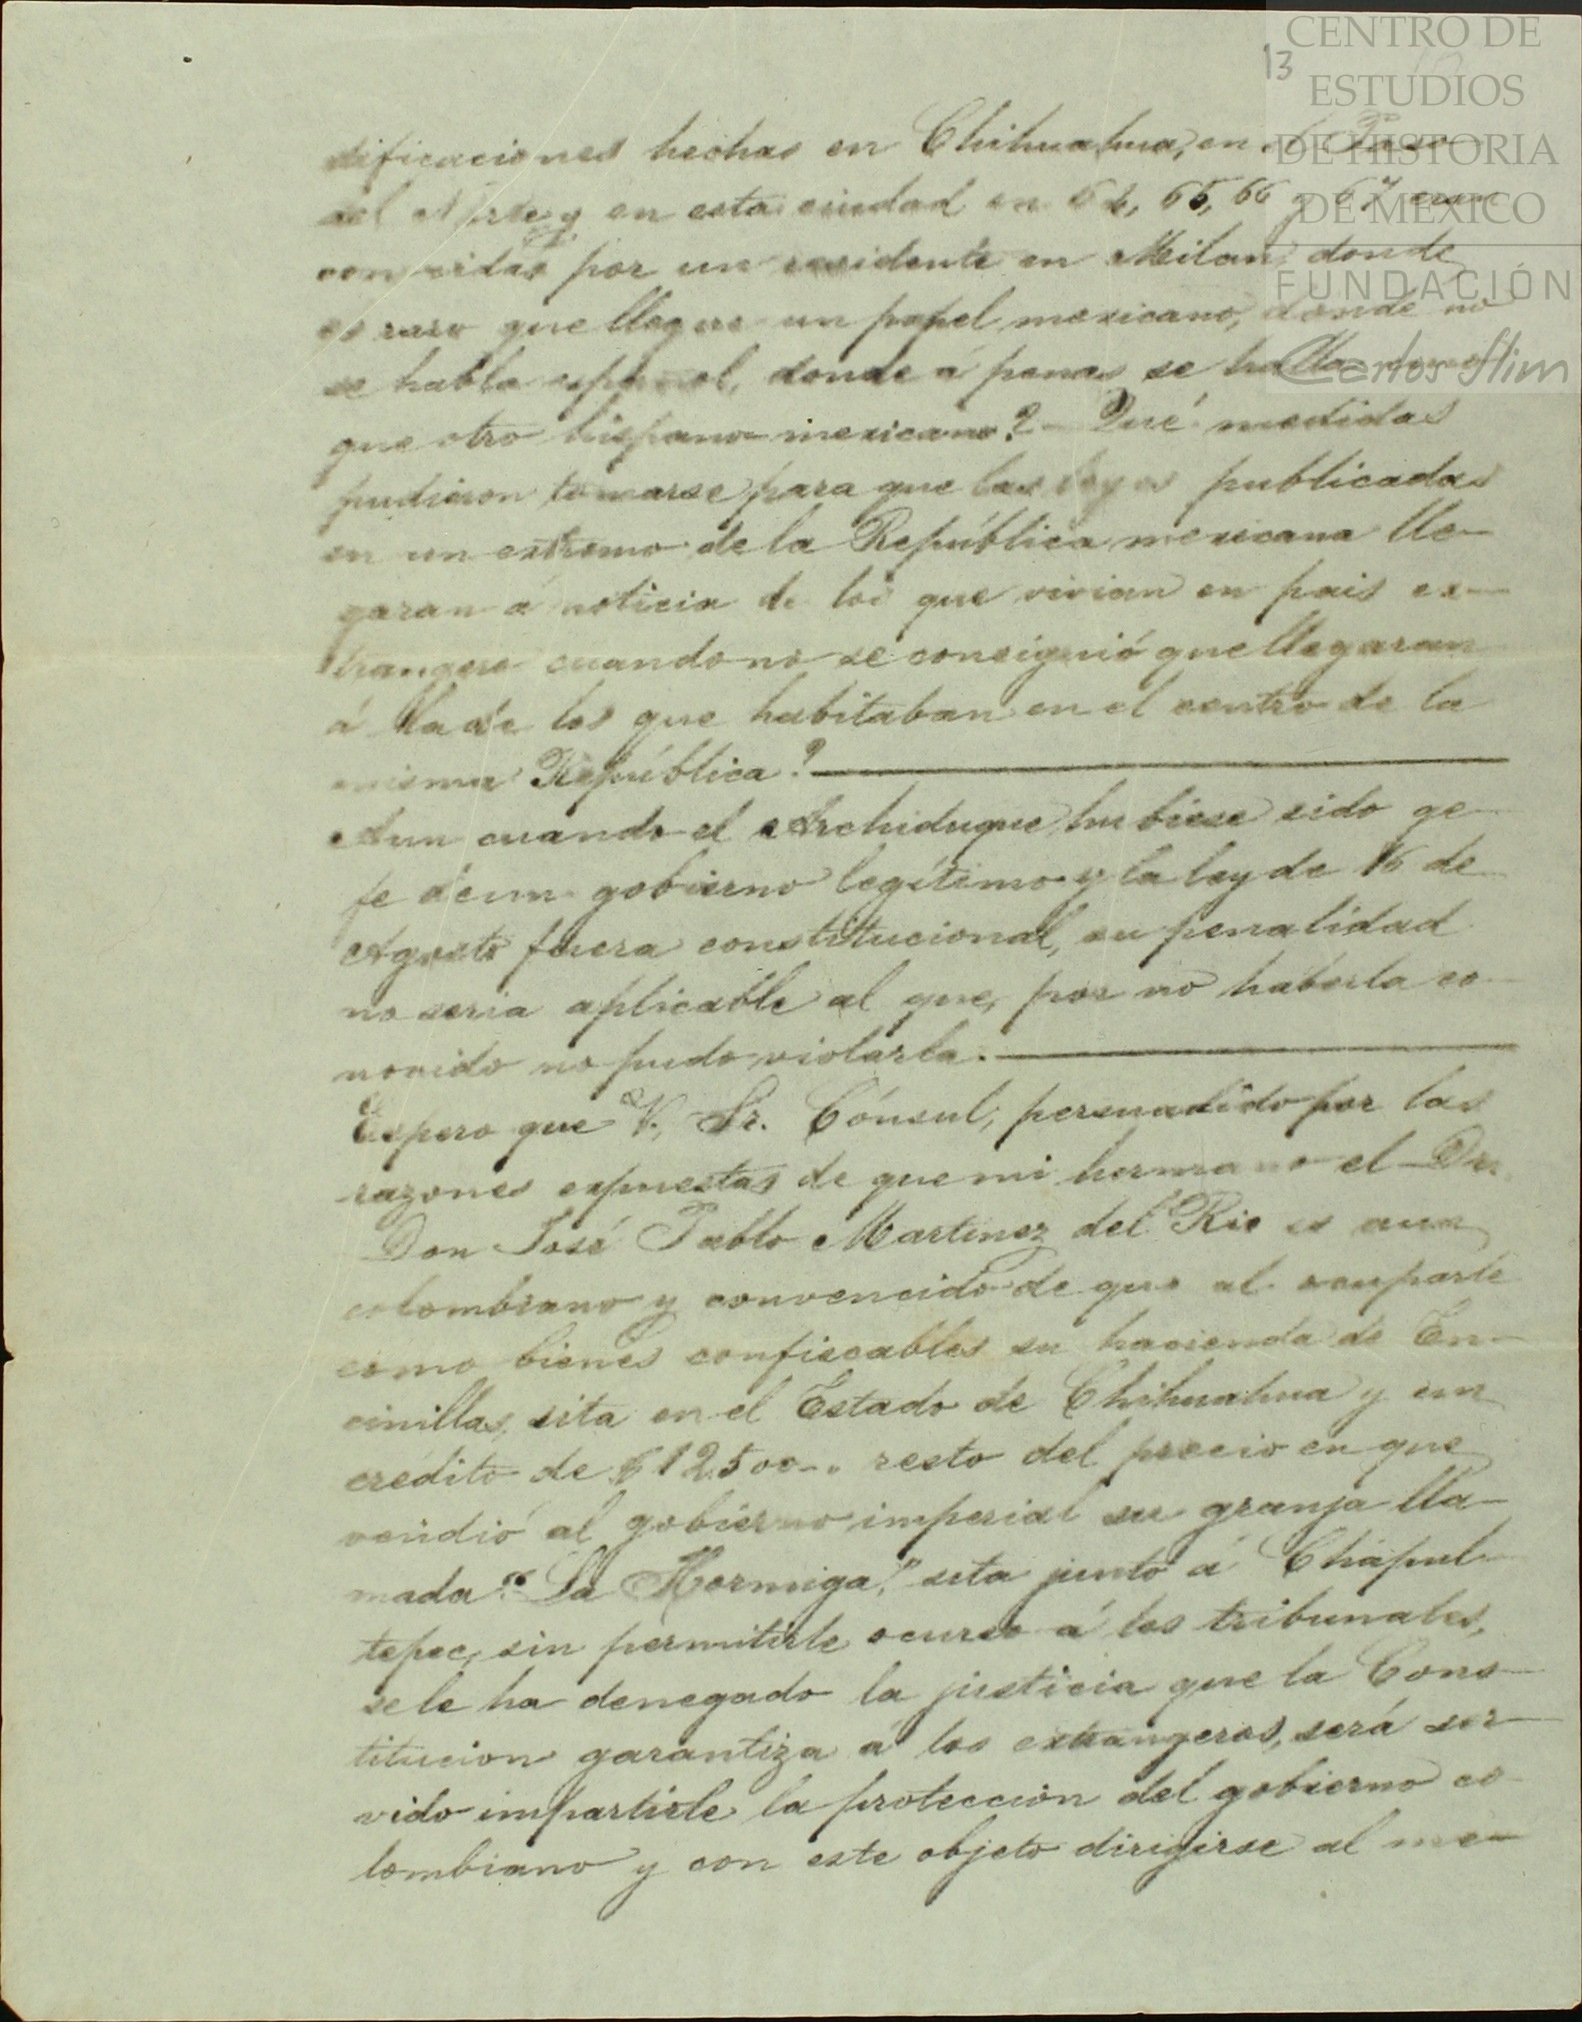 CENTRO DE
ESTUDIOS
DE HISTORIA
DE MEXICO
FUNDACIÓN
Carlos Slim
13
dificaciones hechas en Chihuahua, en el Paso
del Norte y en esta ciudad en 64, 65, 66 y 67 eran
conocidas por un residente en Milan, donde
es raro que llegue un papel mexicano, donde no
se habla español, donde á penas se halla
que otro hispano-mexicano? - Qué medidas
pudieron tomarse para que las leyes publicadas
en un extremo de la República mexicana lle-
garan á noticia de los que vivian en pais ex-
trangero cuando no se consiguió que llegaran
á la de los que habitaban en el centro de la
misma República?
Aun cuando el Archiduque hubiese sido ge-
fe de un gobierno legítimo y la ley de 16 de
Agosto fuera constitucional, su penalidad
no seria aplicable al que, por no haberla co-
nocido no pudo violarla.
Espero que V., Sr. Cónsul, persuadido por las
razones expuestas de que mi hermano el Dr.
Don José Pablo Martinez del Rio es aun
colombiano y convencido de que al ocuparle
como bienes confiscables su hacienda de En-
cinillas, sita en el Estado de Chihuahua y un
crédito de $12500-.. resto del precio en que
vendió al gobierno imperial su granja lla-
mada "La Hormiga," sita junto á Chapul-
tepec, sin permitirle ocurrir á los tribunales,
se le ha denegado la justicia que la Cons-
titucion garantiza á los extrangeros, será ser-
vido impartirle la proteccion del gobierno co-
lombiano y con este objeto dirigirse al me-